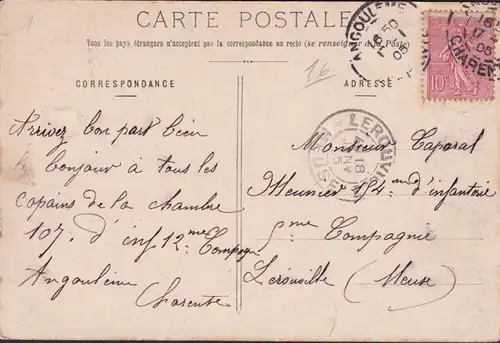 CARTE POSTALE
Tous les pays étrangers n'acceptent pas la correspondance au recto (se renseigner à la Poste)
CORRESPONDANCE
16
ADRESSE
Arrivez bon part bien
bonjour à tous les
copains de la chambre
107. d'inf 12me Compagne
Angoulème
Charente
Monsieur Caparal
Meunier 154me d'infanterie
5me Compagnie
Lerouville (Meuse)
ANGOULEME
CHARENTE
10c
LEROUVILLE
MEUSE